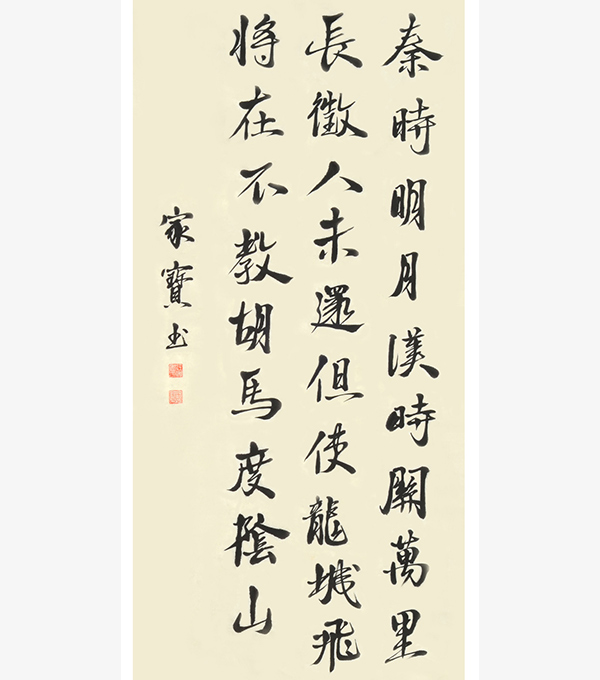 秦時明月漢時關萬里
長徵人未還但使龍城飛
将在不教胡馬度陰山
家寶书